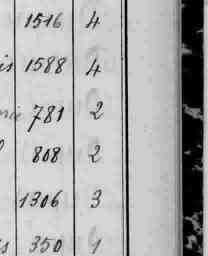 1516 4
is 1588 4
781 2
808 2
1306 3
s 350 1